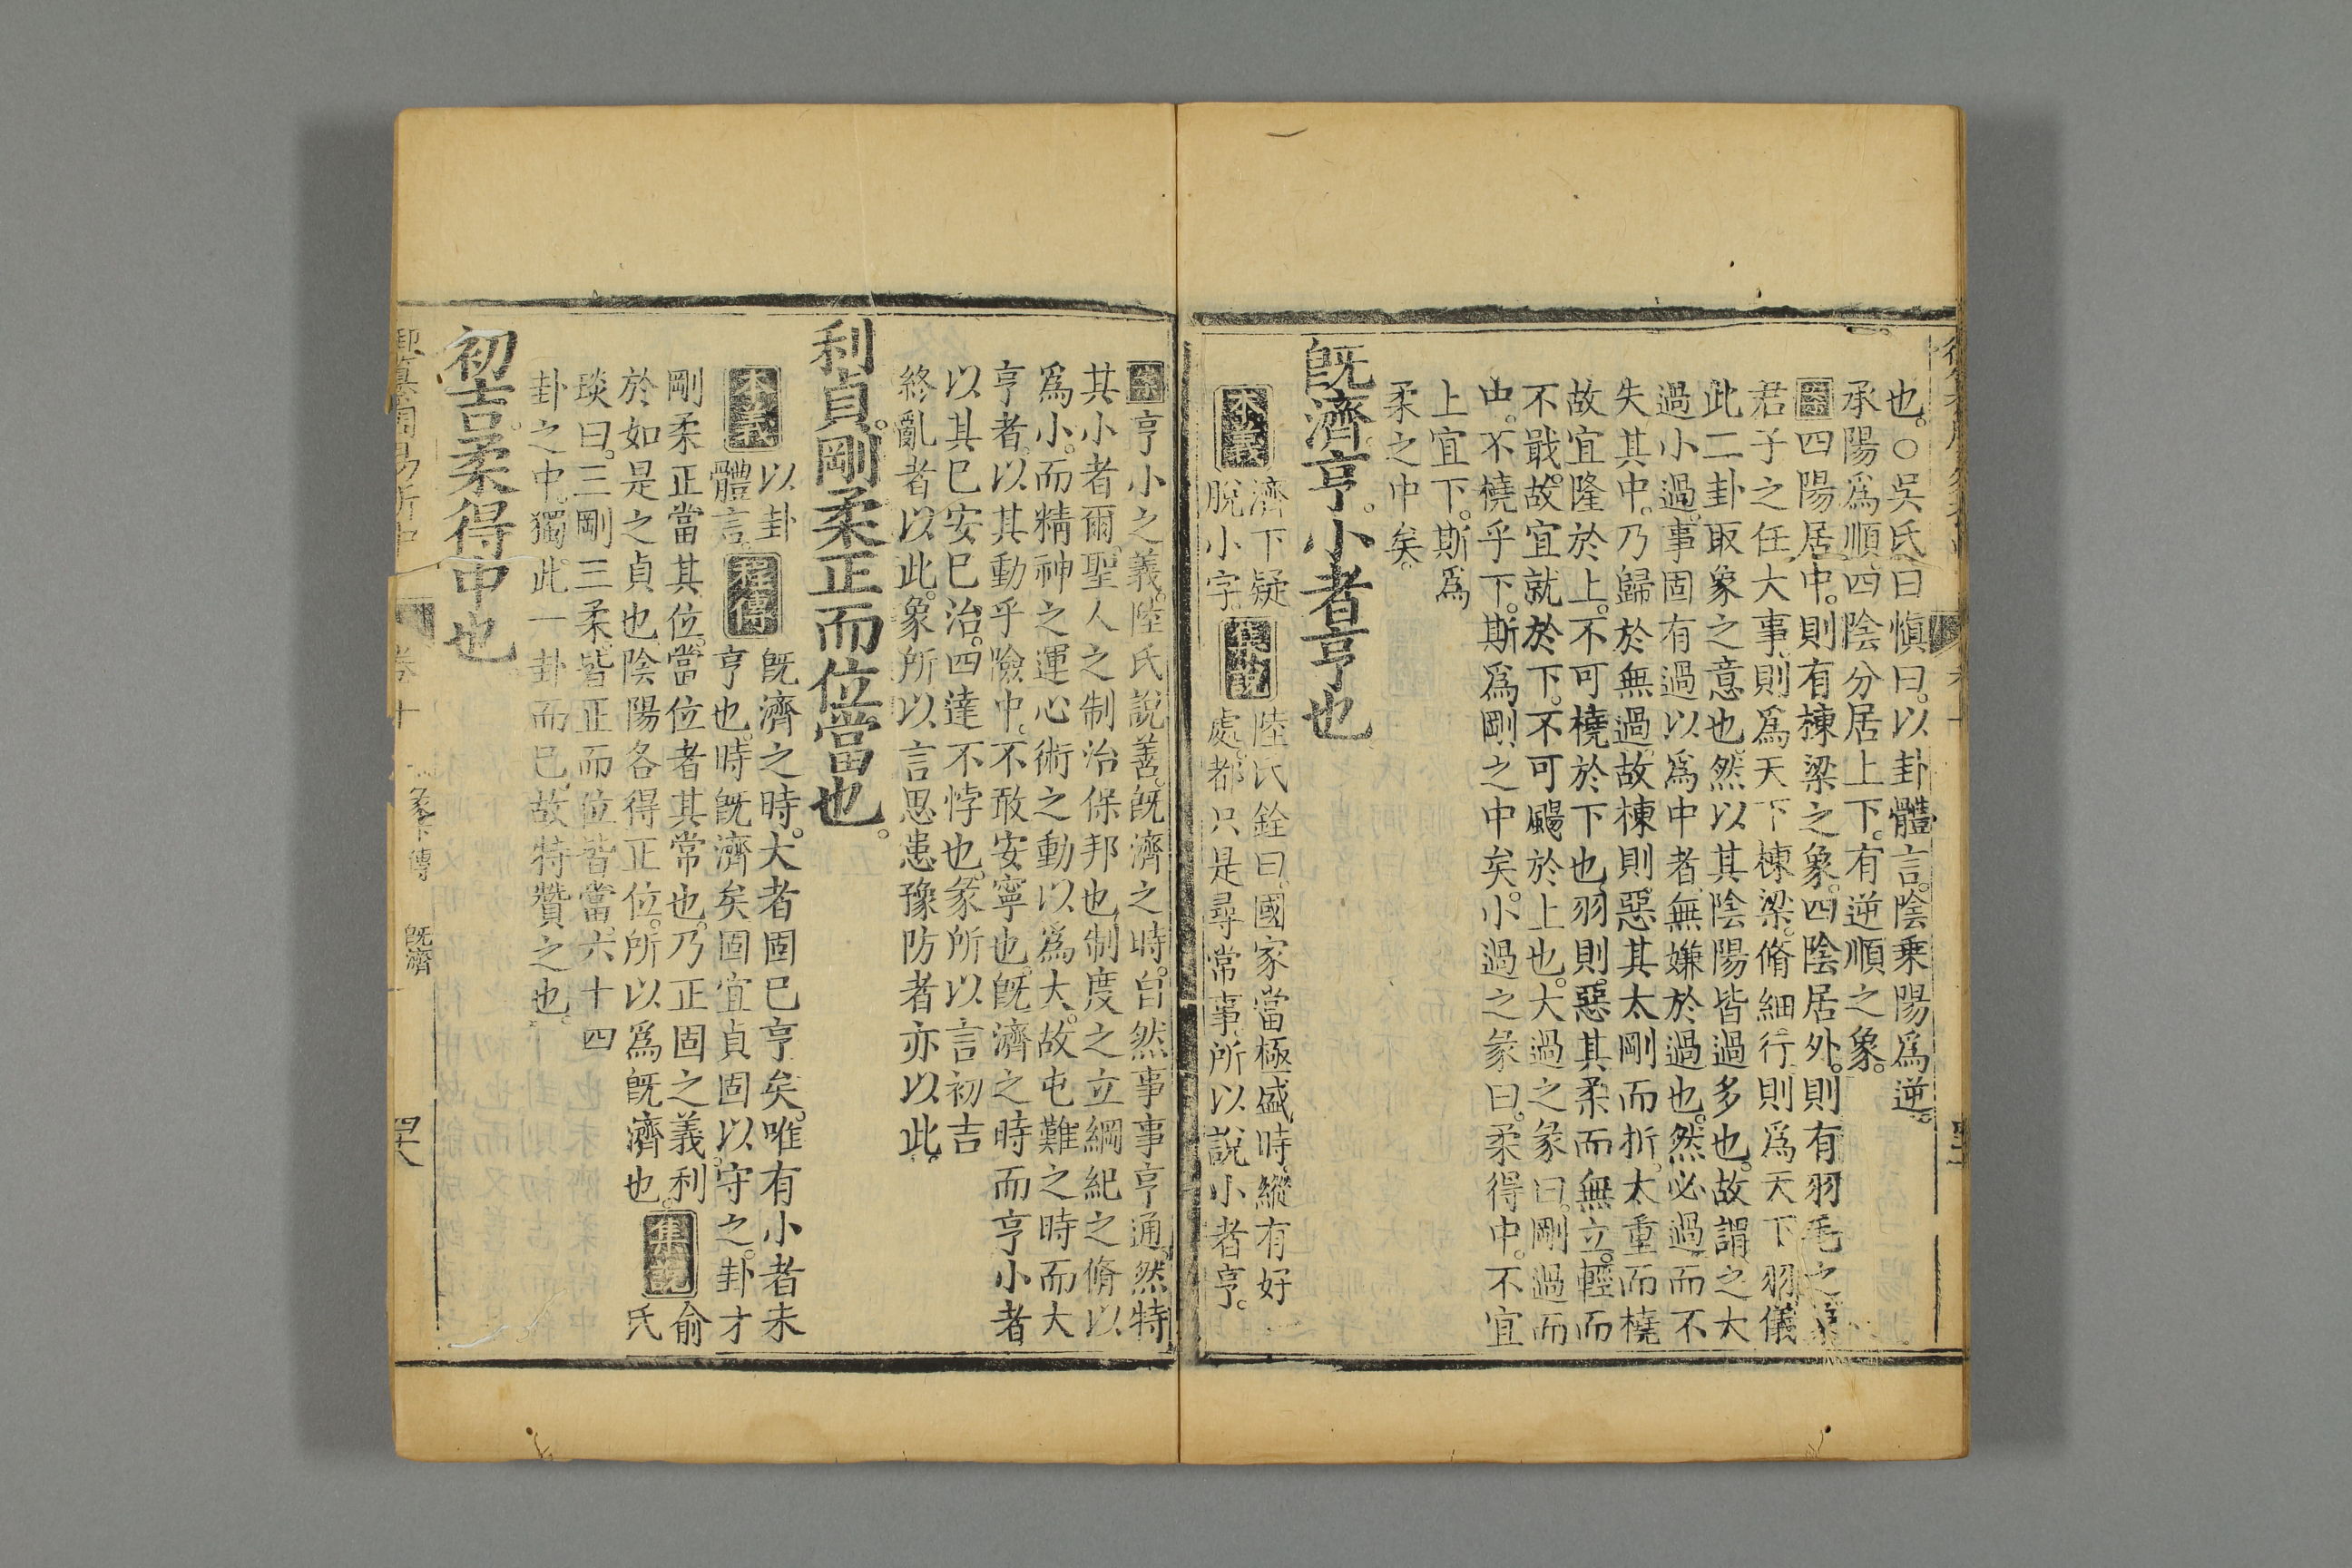 也。○吳氏曰愼曰。以卦體言。陰乘陽爲逆。
承陽爲順。四陰分居上下。有逆順之象。
案四陽居中。則有棟梁之象。四陰居外。則有羽毛之象
君子之任大事。則爲天下棟梁。脩細行。則爲天下羽儀
此二卦取象之意也。然以其陰陽皆過多也。故謂之大
過小過。事固有過以爲中者。無嫌於過也。然必過而不
失其中。乃歸於無過。故棟則惡其太剛而折。太重而橈
故宜隆於上。不可橈於下也。羽則惡其柔而無立。輕而
不戢。故宜就於下。不可颺於上也。大過之彖曰。剛過而
中。不橈乎下。斯爲剛之中矣。小過之彖曰。柔得中。不宜
上宜下。斯爲
柔之中矣。
既濟。亨。小者亨也
本義
濟下疑
脫小字。
集說
陸氏銓曰。國家當極盛時。縱有好
處。都只是尋常事。所以說小者亨。
案亨小之義。陸氏說善。既濟之時。自然事事亨通。然特
其小者爾。聖人之制治保邦也。制度之立。綱紀之脩。以
爲小。而精神之運。心術之動。以爲大。故屯難之時而大
亨者。以其動乎險中。不敢安寧也。既濟之時而亨小者
以其已安已治。四達不悖也。彖所以言初吉
終亂者以此。象所以言思患豫防者亦以此。
利貞。剛柔正而位當也。
本義
以卦
體言。
程傳
既濟之時。大者固已亨矣。唯有小者未
亨也。時既濟矣。固宜貞固以守之。卦才
剛柔正當其位。當位者其常也。乃正固之義。利
於如是之貞也。陰陽各得正位。所以爲既濟也。
集說
俞
氏
琰曰。三剛三柔。皆正而位皆當。六十四
卦之中。獨此一卦而已。故特贊之也。
初吉。柔得中也。
御纂周易折中
卷十
彖下傳
既濟
四十八